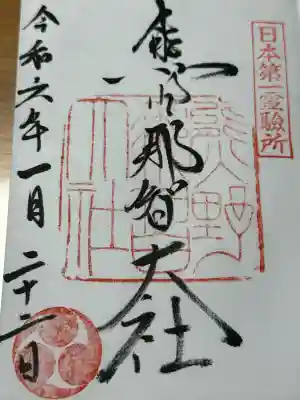 日本第一霊験所
熊野那智大社
熊野
那智
大社
令和六年一月二十二日